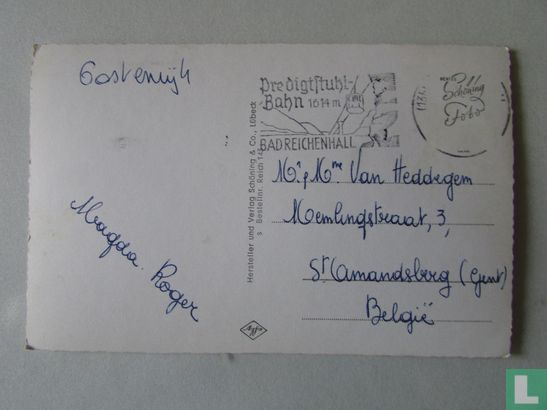 Oostenrijk
Predigtstuhl-
Bahn 1614 m
BAD REICHENHALL
Schöning
Foto
Mr & Mme Van Heddegem
Memlingstraat, 3,
St Amandsberg (Gent)
België
Magda - Roger
Hersteller und Verlag Schöning & Co., Lübeck
s Bestellnr. Reich
Agfa